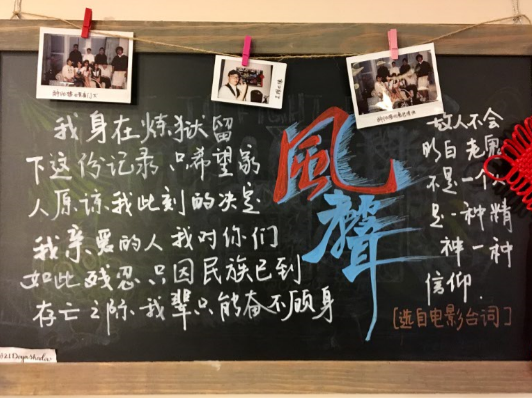 我身在炼狱留
下这份记录只希望家
人原谅我此刻的决定
我亲爱的人我对你们
如此残忍只因民族已到
存亡之际.我辈只能奋不顾身
風聲
敌人不会
明白老鬼
不是一个人
是一种精
神一种
信仰.
[选自电影台词]